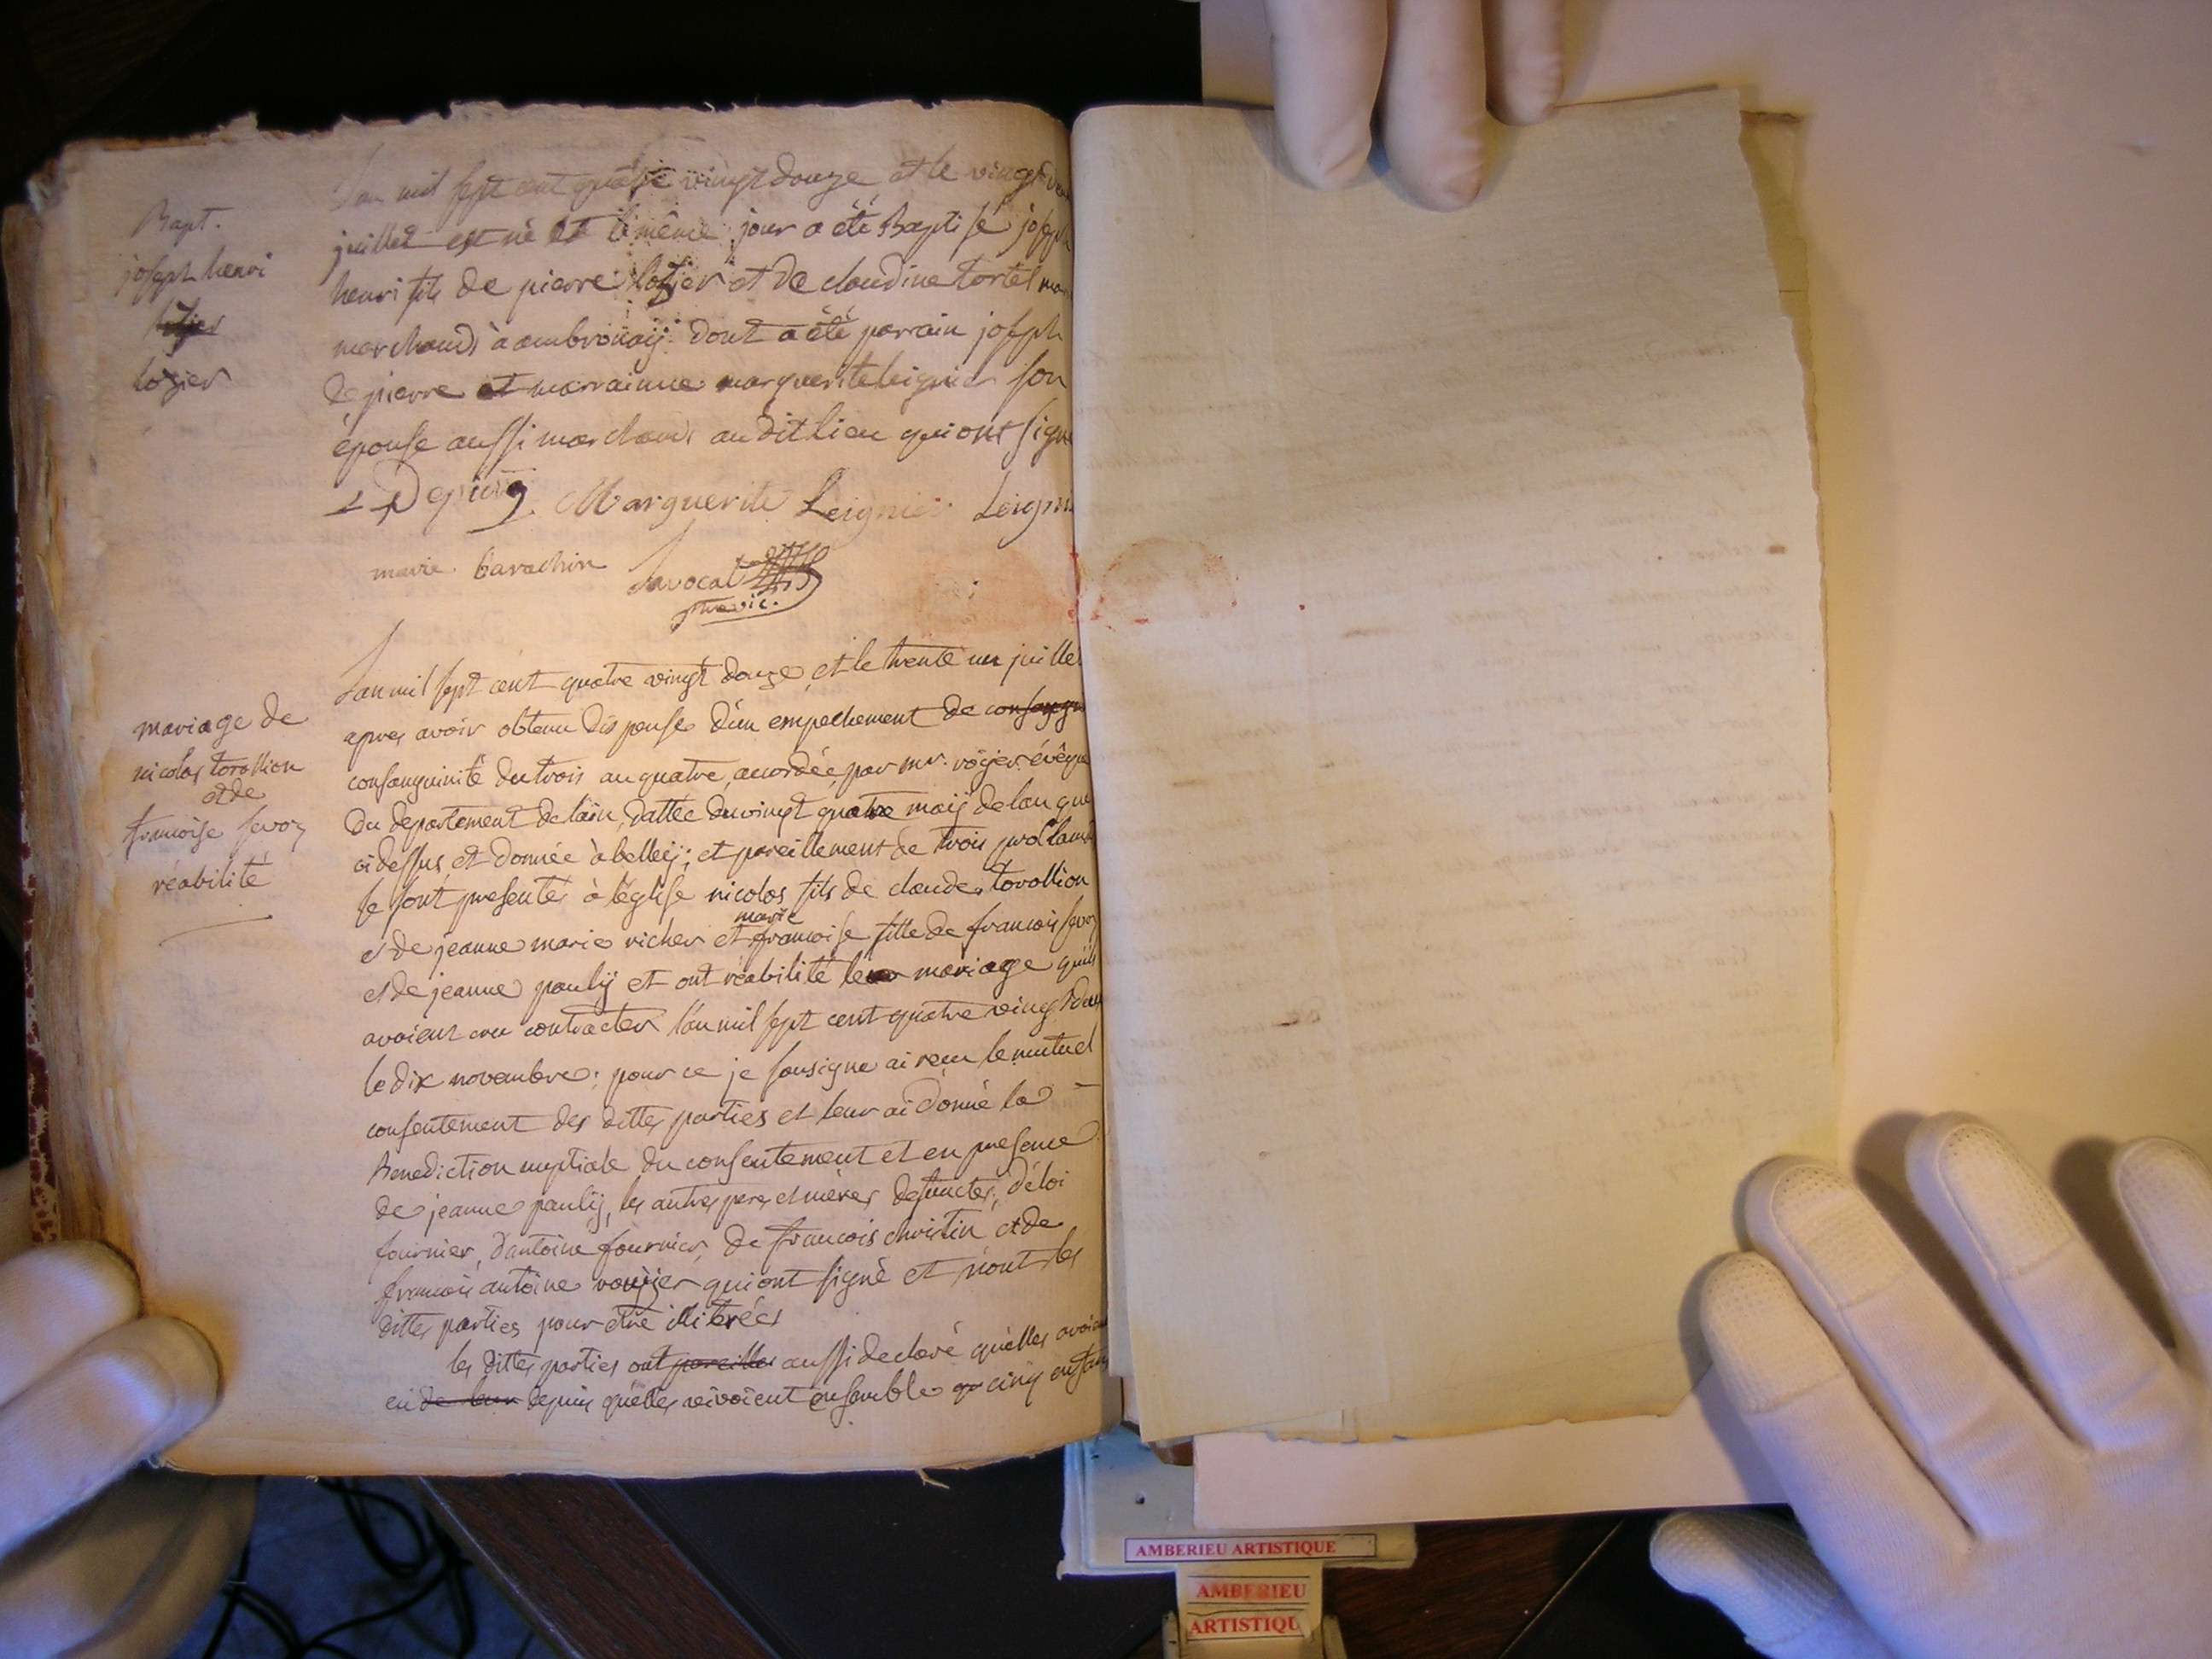 Bapt.
joseph henri
lozier
L'an mil sept cent quatre vingt douze et le vingt
juillet est né et le même jour a été Baptisé joseph
henri fils de pierre lozier et de claudine tortel
marchands à ambroüaÿ dont a été parrain joseph
depierre et marrainne marguerite leignier son
épouse aussi marchands audit lieu qui ont signé
Marguerite Leignier
marie barachin Savocat
vic.
mariage de
nicolas torollion
et de
francoise savoy
réabilité
L'an mil sept cent quatre vingt douze et le trente un juillet
apres avoir obtenu dispense d'un empechement de consangu
consanguinité du trois au quatre, accordée par mr. royer évêque
du departement de l'ain, dattée du vingt quatre maÿ de l'an que
ci dessus, et donnée à belleÿ; et pareillement de trois proclama
se sont presentés à l'église nicolas fils de claude torollion
et de jeanne marie richer et marie francoise fille de francois savoy
et de jeanne paulÿ et ont réabilité leur mariage qu'ils
avoient cru contracter l'an mil sept cent quatre vingt
le dix novembre: pour ce je sousigné ai reçu le mutuel
consentement des dittes parties et leur ai donné la
Benediction nuptiale du consentement et en presence
de jeanne paulÿ, les autres peres et mères defuncts, d'éloi
fournier, d'antoine fournier, de francois christin et de
francois antoine voÿsier qui ont signé et n'ont les
dittes parties pour etre illitérées
les dittes parties ont pareille aussi declaré qu'elles avoient
eu de leur depuis qu'elles vivoient ensemble cinq enfans
AMBERIEU ARTISTIQUE
AMBERIEU
ARTISTIQU